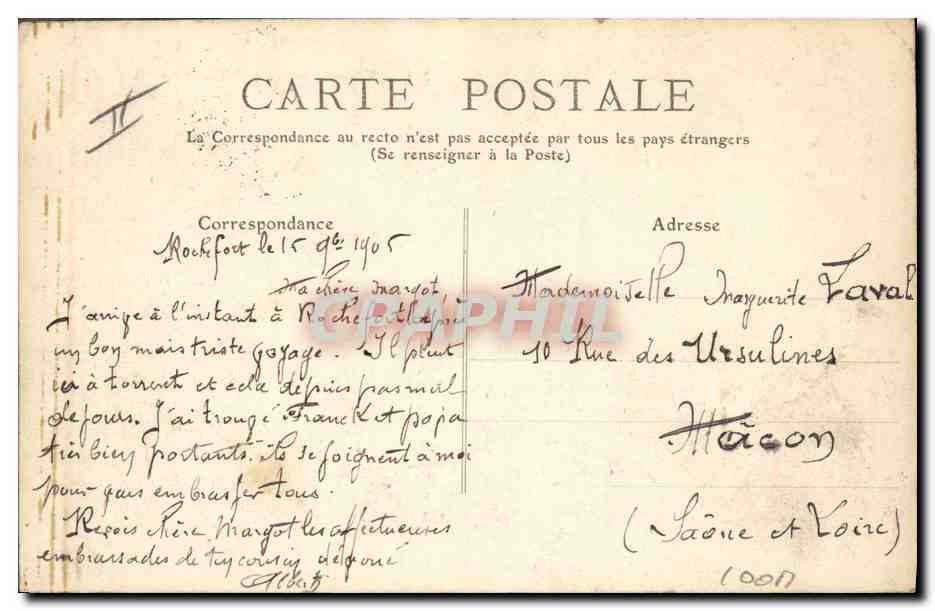 II
CARTE POSTALE
La Correspondance au recto n'est pas acceptée par tous les pays étrangers
(Se renseigner à la Poste)
Correspondance
Rochefort le 15 9bre 1905
Ma chère Margot
J'arrive à l'instant à Rochefort après
un bon mais triste voyage. Il pleut
ici à torrent et cela depuis pas mal
de jours. J'ai trouvé Franck et papa
très bien portants. ils se joignent à moi
pour vous embrasser tous.
Reçois chère Margot les affectueuses
embrassades de ton cousin dévoué
Albert
Adresse
Mademoiselle Marguerite Laval
10 Rue des Ursulines
Mâcon
(Saône et Loire)
CPAPHIL